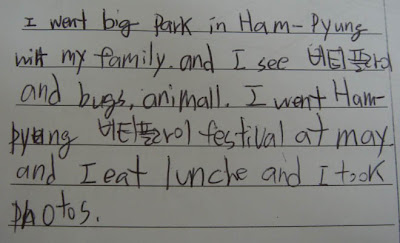 I went big park in Ham-Pyung
with my family. and I see 버터플라이
and bugs, animall. I went Ham-
pyung 버터플라이 festival at may.
and I eat lunche and I took
photos.